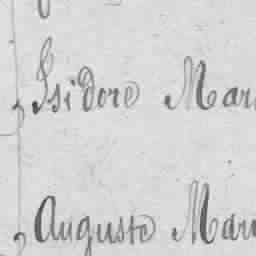 Isidore Mar
Auguste Mar